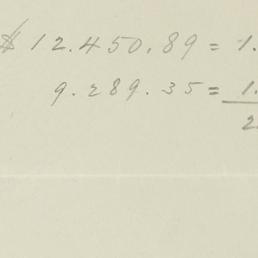 $ 12.450.89 = 1.
9.289.35 = 1.
2